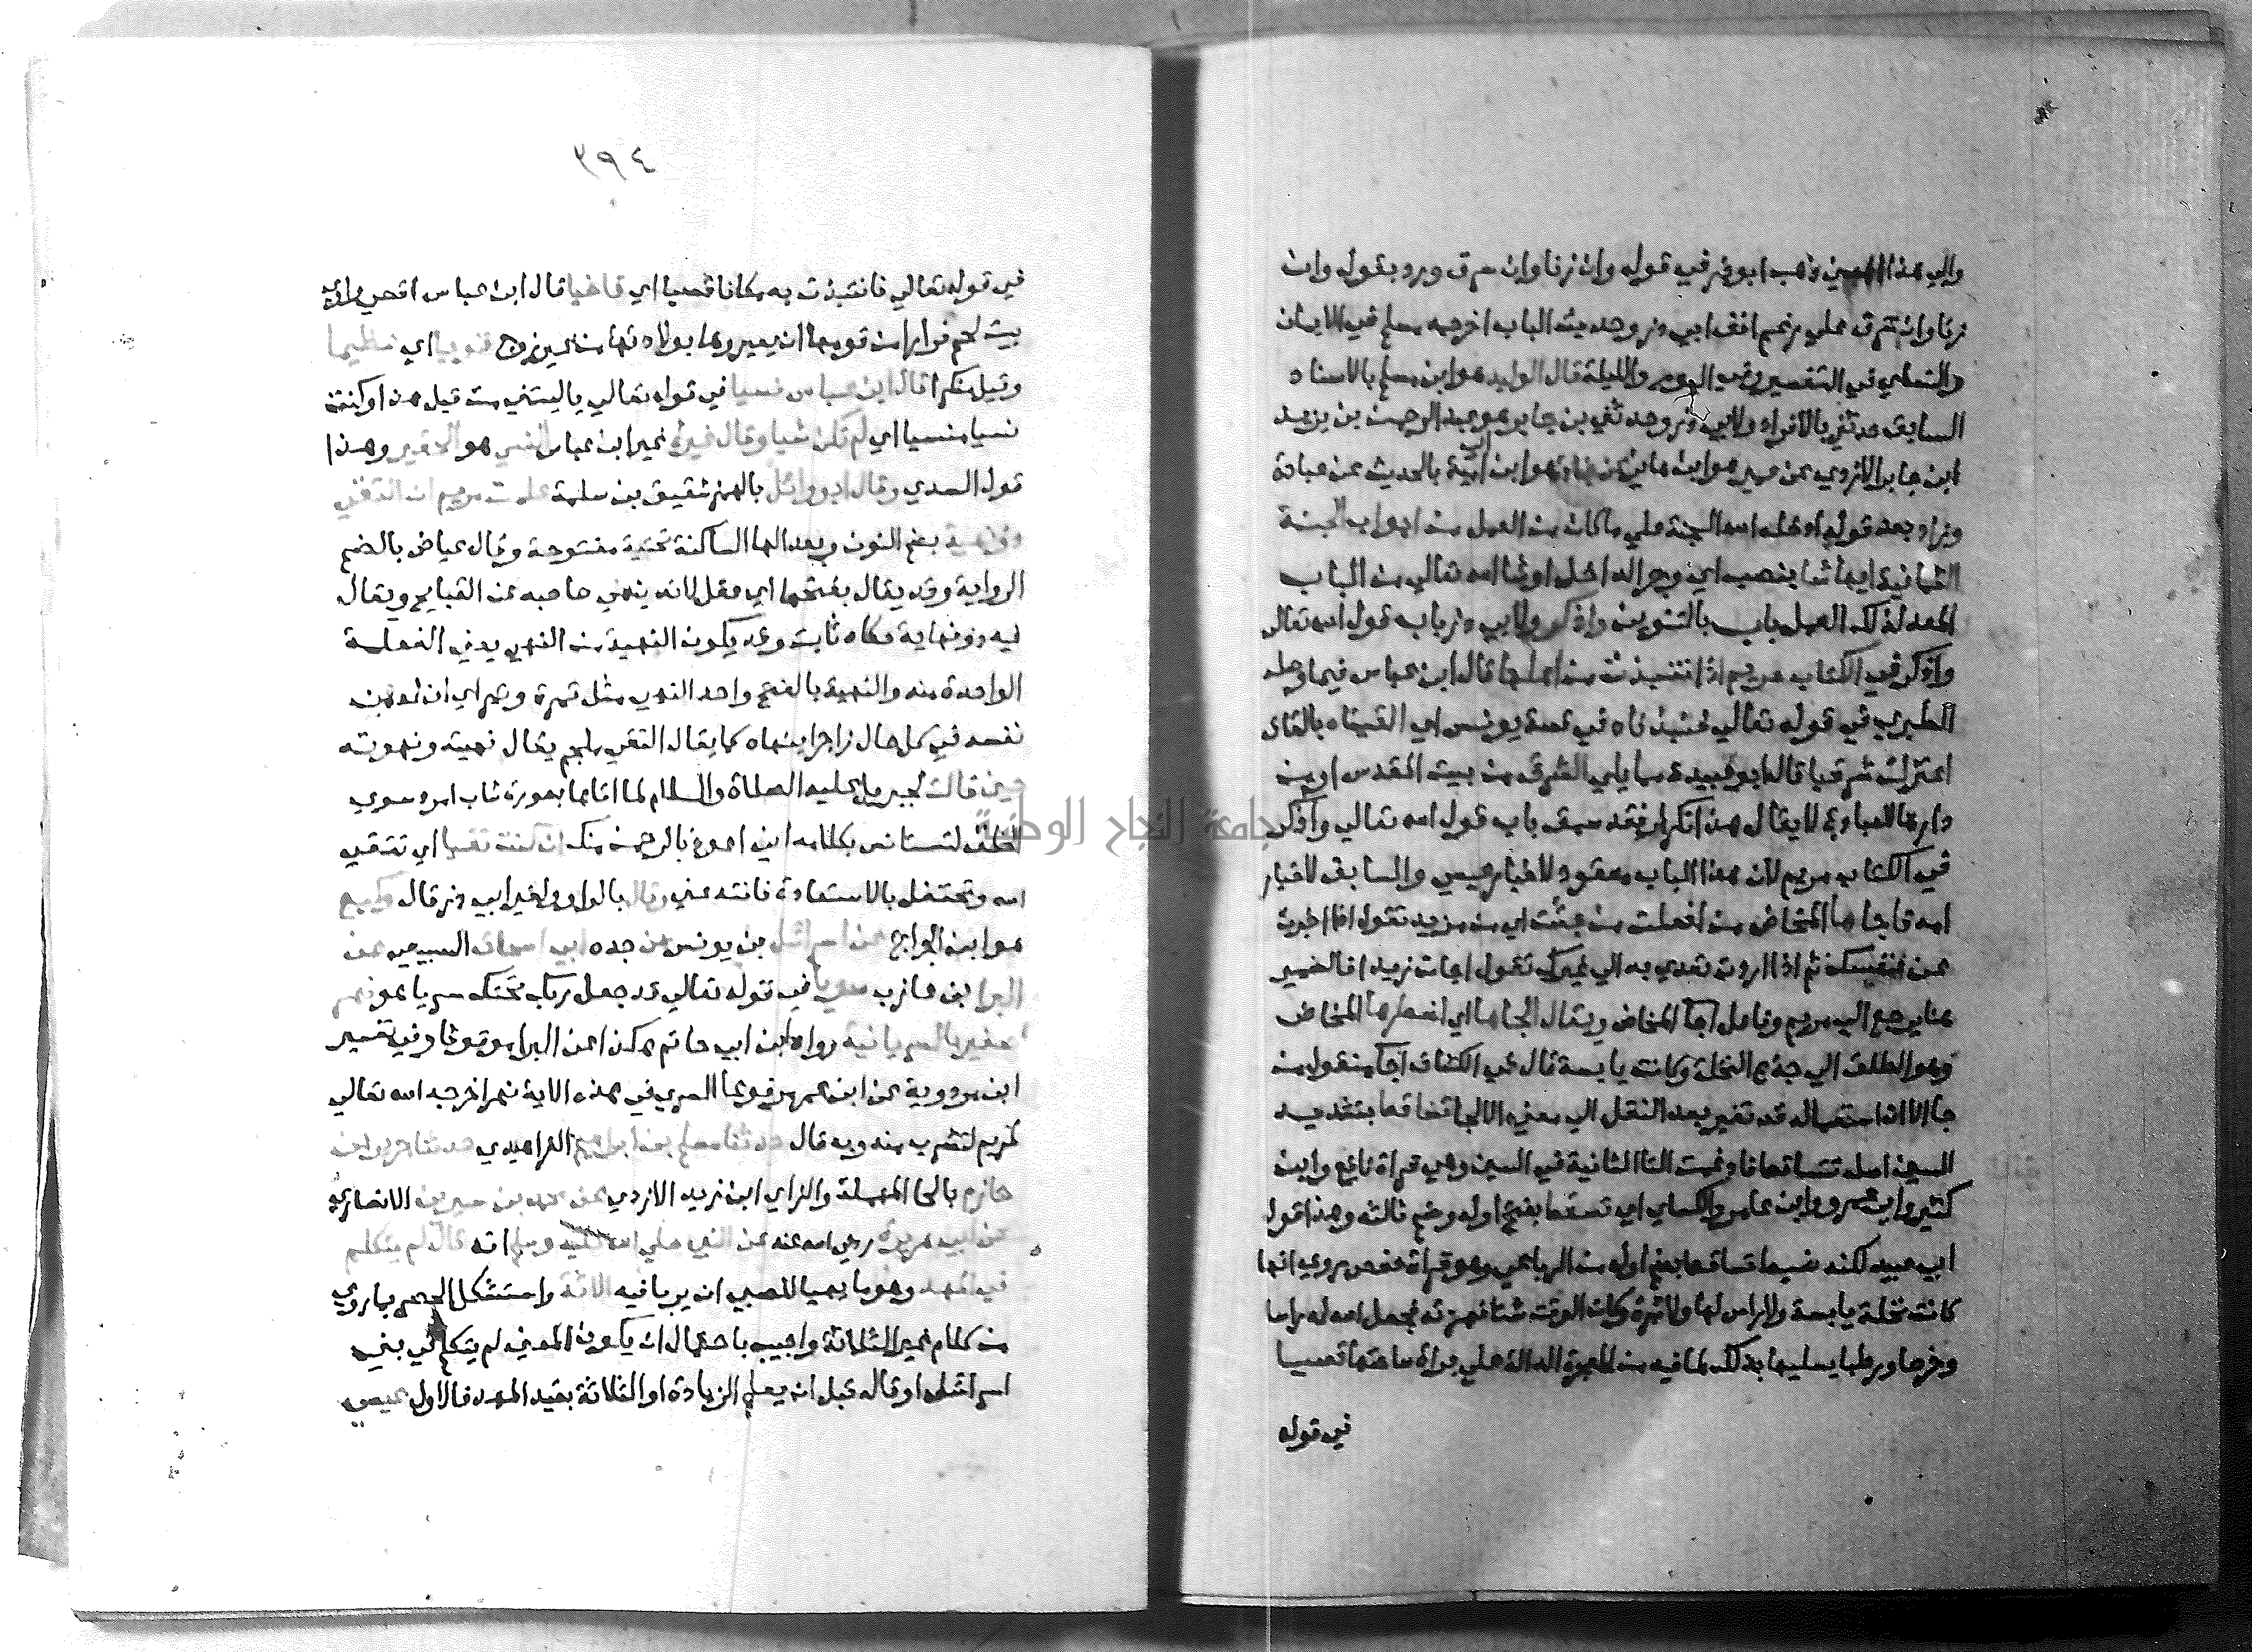 والي هذا المعين ذهب ابو ذر في قوله وان زنا وان سرق ورد بقوله وان
زنا وان سرق علي رغم انف ابي ذر وحديث الباب اخرجه مسلم في الايمان
والنسائي في التفسير وفي اليوم والليلة قال الوليد هو ابن مسلم بالاسناد
السابق حدثني بالافراد ولابي ذر وحدثني بن جابر هو عبد الرحمن بن يزيد
ابن جابر الازدي عن عمير هو ابن هاني عن جنادة هو ابن ابي امية بالحديث عن عبادة
وزاد بعد قوله ادخله الله الجنة علي ما كان من العمل من ابواب الجنة
الثمانية ايها شا بنصب اي وجر الداخل او شا الله تعالي من الباب
المعد لذلك العمل باب بالتنوين واذكر ولابي ذر باب قول الله تعالي
واذكر في الكتاب مريم اذ انتبذت من اهلها قال ابن عباس فيما وصله
الطبري في قوله تعالي فنبذناه في قصة يونس اي القيناه بالقاف
اعتزلت شرقيا قال ابو عبيدة مما يلي الشرق من بيت المقدس او من
دارها للعبادة لا يقال هذا تكرار فقد سبق باب قول الله تعالي واذكر
في الكتاب مريم لان هذا الباب معقود لاخبار عيسي والسابق لاخبار
امه فاجاها المخاض من افعلت من جئت اي من مزيد تقول اذا اخبرت
عن نفسك ثم اذا اردت تعدي به الي غيرك تقول اجات زيدا فالضمير
هنا يرجع الي مريم وفاعل اجا المخاض ويقال الجاها اي اضطرها المخاض
وهو الطلق الي جذع النخلة وكانت يابسة قال في الكشاف اجا منقول من
جا الا ان استعماله قد تغير بعد النقل الي معني الالجا تساقط بتشديد
السين اصله تتساقط فادغمت التا الثانية في السين وهي قراة نافع وابن
كثير وابي عمرو وابن عامر والكساي اي تسقط بفتح اوله وضم ثالثه وهذا قول
ابي عبيد لكنه ضبط تساقط بضم اوله من الرباعي وهو قراة حفص روي انها
كانت نخلة يابسة ولا راس لها ولا ثمرة وكان الوقت شتا فهزته فجعل الله له راسا
وخوصا ورطبا يسليها بذلك لما فيه من المعجزة الدالة علي براة ساحتها قصيا
في قوله
٣٩٤
في قوله تعالي فانتبذت به مكانا قصيا اي قاصيا قال ابن عباس اقصي وادي
بيت لحم فرارا من قومها ان يعيروها بولادتها من غير زوج فريا اي عظيما
وقيل منكرا قال ابن عباس نسيا في قوله تعالي يا ليتني مت قبل هذا وكنت
نسيا منسيا اي لم اكن شيا وقال غيره غير ابن عباس النسي هو الحقير وهذا
قول السدي وقال ابو وائل بالهمز شقيق بن سلمة علمت مريم ان التقي
ذو نهية بضم النون وبعد الها الساكنة تحتية مفتوحة وقال عياض بالضم
الرواية وقد يقال بفتحها اي عقل لانه ينهي صاحبه عن القبايح ويقال
فيه ذو نهاية حكاه ثابت وقد يكون النهية من النهي يعني الفعلة
الواحدة منه والنهية بالفتح واحد النهي مثل تمرة وتمر اي ان له من
نفسه في كل حال زاجرا ينهاه كما يقال التقي ملجم يقال نهيته ونهوته
حين قالت لجبريل عليه الصلاة والسلام لما اتاها بصورة شاب امرد سوي
الخلق لتستانس بكلامه اني اعوذ بالرحمن منك ان كنت تقيا اي تتقي
الله وتحتفل بالاستعاذة فانته عني وقال بالواو ولغير ابي ذر قال وكيع
هو ابن الجراح عن اسرائيل بن يونس عن جده ابي اسحاق السبيعي عن
البرا بن عازب سريا في قوله تعالي قد جعل ربك تحتك سريا هو نهر
صغير بالسريانية رواه ابن ابي حاتم هكذا عن البرا موقوفا وفي تفسير
ابن مردوية عن ابن عمر مرفوعا السري في هذه الاية نهر اخرجه الله تعالي
لمريم لتشرب منه وبه قال حدثنا مسلم بن ابراهيم الفراهيدي حدثنا جرير بن
حازم بالحا المهملة والزاي ابن زيد الازدي عن محمد بن سيرين الانصاري
عن ابي هريرة رضي الله عنه عن النبي صلي الله عليه وسلم انه قال لم يتكلم
في المهد وهو ما يهيا للصبي ان يربا فيه الا ثلاثة واستشكل الحصر بما روي
من كلام غير الثلاثة واجيب باحتمال ان يكون المعني لم يتكلم في بني
اسرائيل او قاله قبل ان يعلم الزيادة او الثلاثة بقيد المهد فالاول عيسي
جامعة النجاح الوطنية